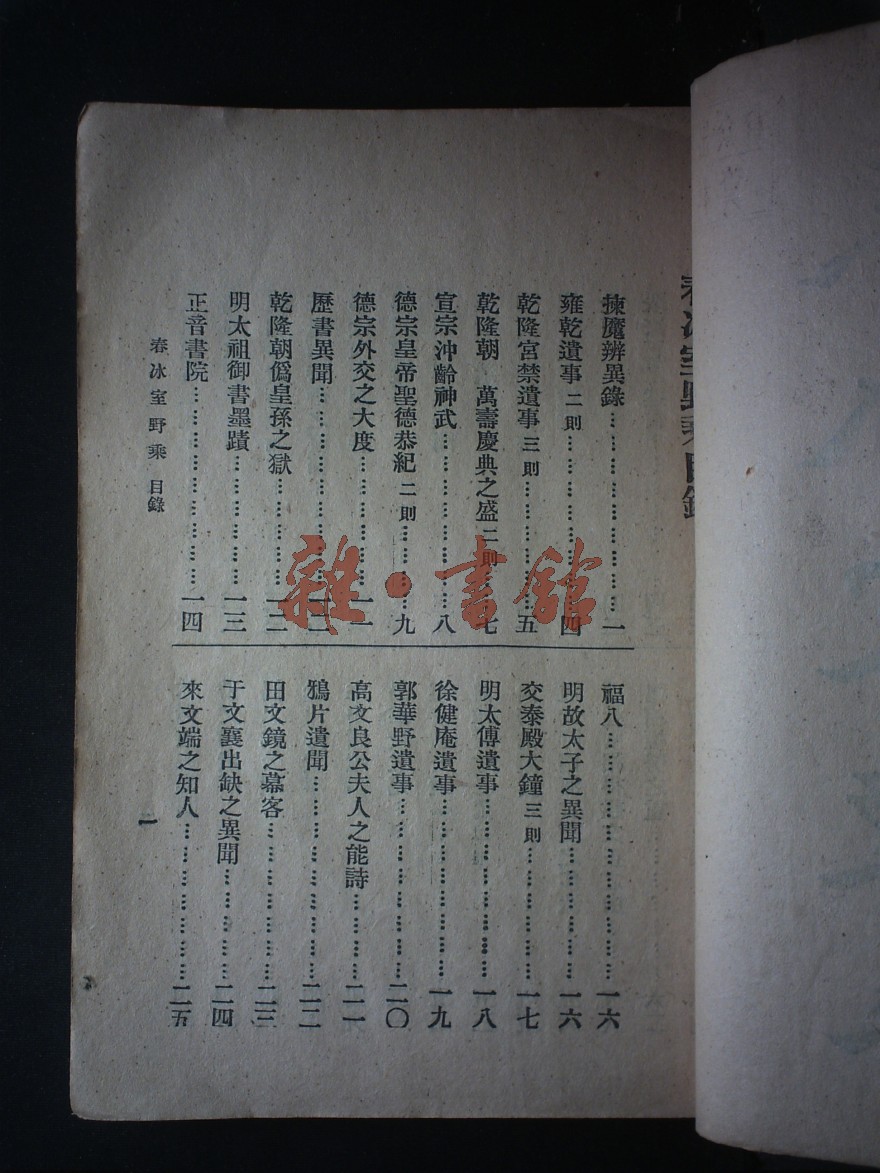 春冰室野乘目錄
揀魔辨異錄……………………一
雍乾遺事 二則………………四
乾隆宮禁遺事 三則…………五
乾隆朝 萬壽慶典之盛 二則…七
宣宗沖齡神武…………………八
德宗皇帝聖德恭紀 二則……九
德宗外交之大度………………一一
歷書異聞………………………一二
乾隆朝僞皇孫之獄……………一二
明太祖御書墨蹟………………一三
正音書院………………………一四
福八……………………………一六
明故太子之異聞………………一六
交泰殿大鐘 三則……………一七
明太傅遺事……………………一八
徐健庵遺事……………………一九
郭華野遺事……………………二〇
高文良公夫人之能詩…………二一
鴉片遺聞………………………二二
田文鏡之幕客…………………二三
于文襄出缺之異聞……………二四
來文端之知人…………………二五
春冰室野乘 目錄
一
雜·書館